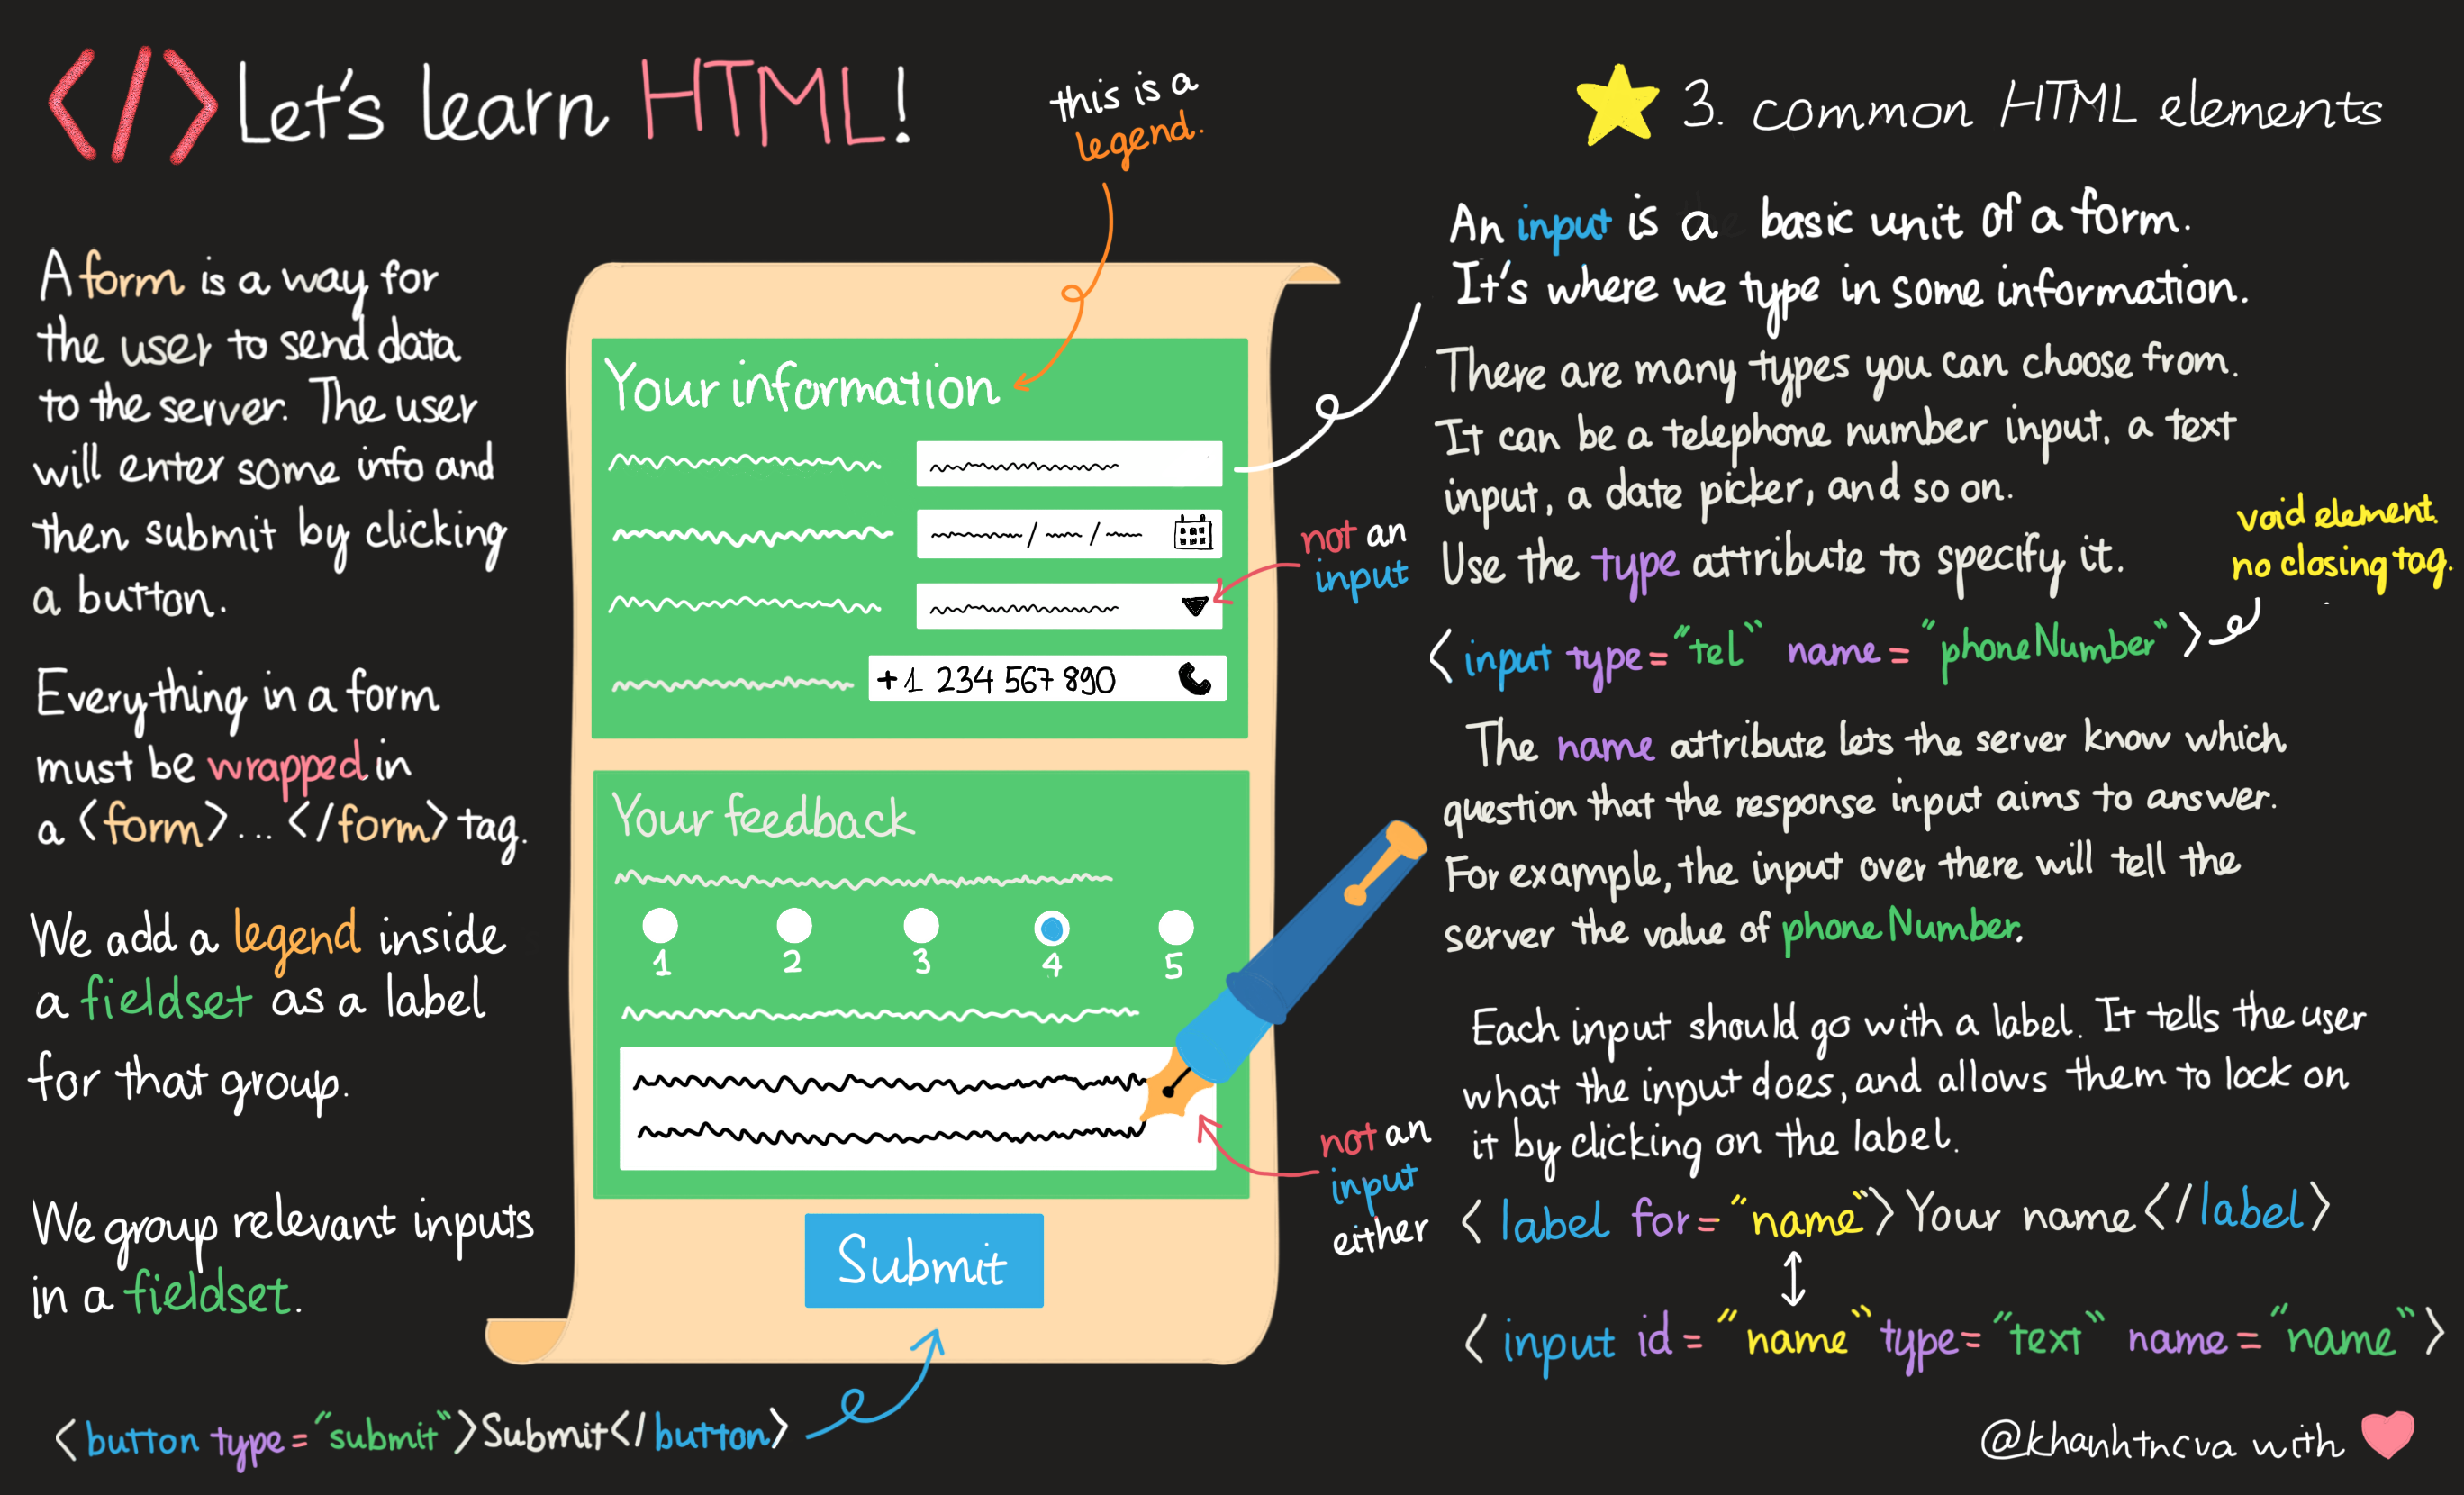 </> Let's learn HTML!
this is a
legend.
3. common HTML elements
A form is a way for
the user to send data
to the server. The user
will enter some info and
then submit by clicking
a button.
Everything in a form
must be wrapped in
a <form>...</form> tag.
We add a legend inside
a fieldset as a label
for that group.
We group relevant inputs
in a fieldset.
<button type="submit">Submit</button>
Your information
+1 234 567 890
Your feedback
1 2 3 4 5
Submit
not an
input
not an
input
either
An input is a basic unit of a form.
It's where we type in some information.
There are many types you can choose from.
It can be a telephone number input, a text
input, a date picker, and so on.
Use the type attribute to specify it.
void element.
no closing tag.
<input type="tel" name="phoneNumber">
The name attribute lets the server know which
question that the response input aims to answer.
For example, the input over there will tell the
server the value of phoneNumber.
Each input should go with a label. It tells the user
what the input does, and allows them to lock on
it by clicking on the label.
<label for="name">Your name</label>
<input id="name" type="text" name="name">
@khanhtncva with